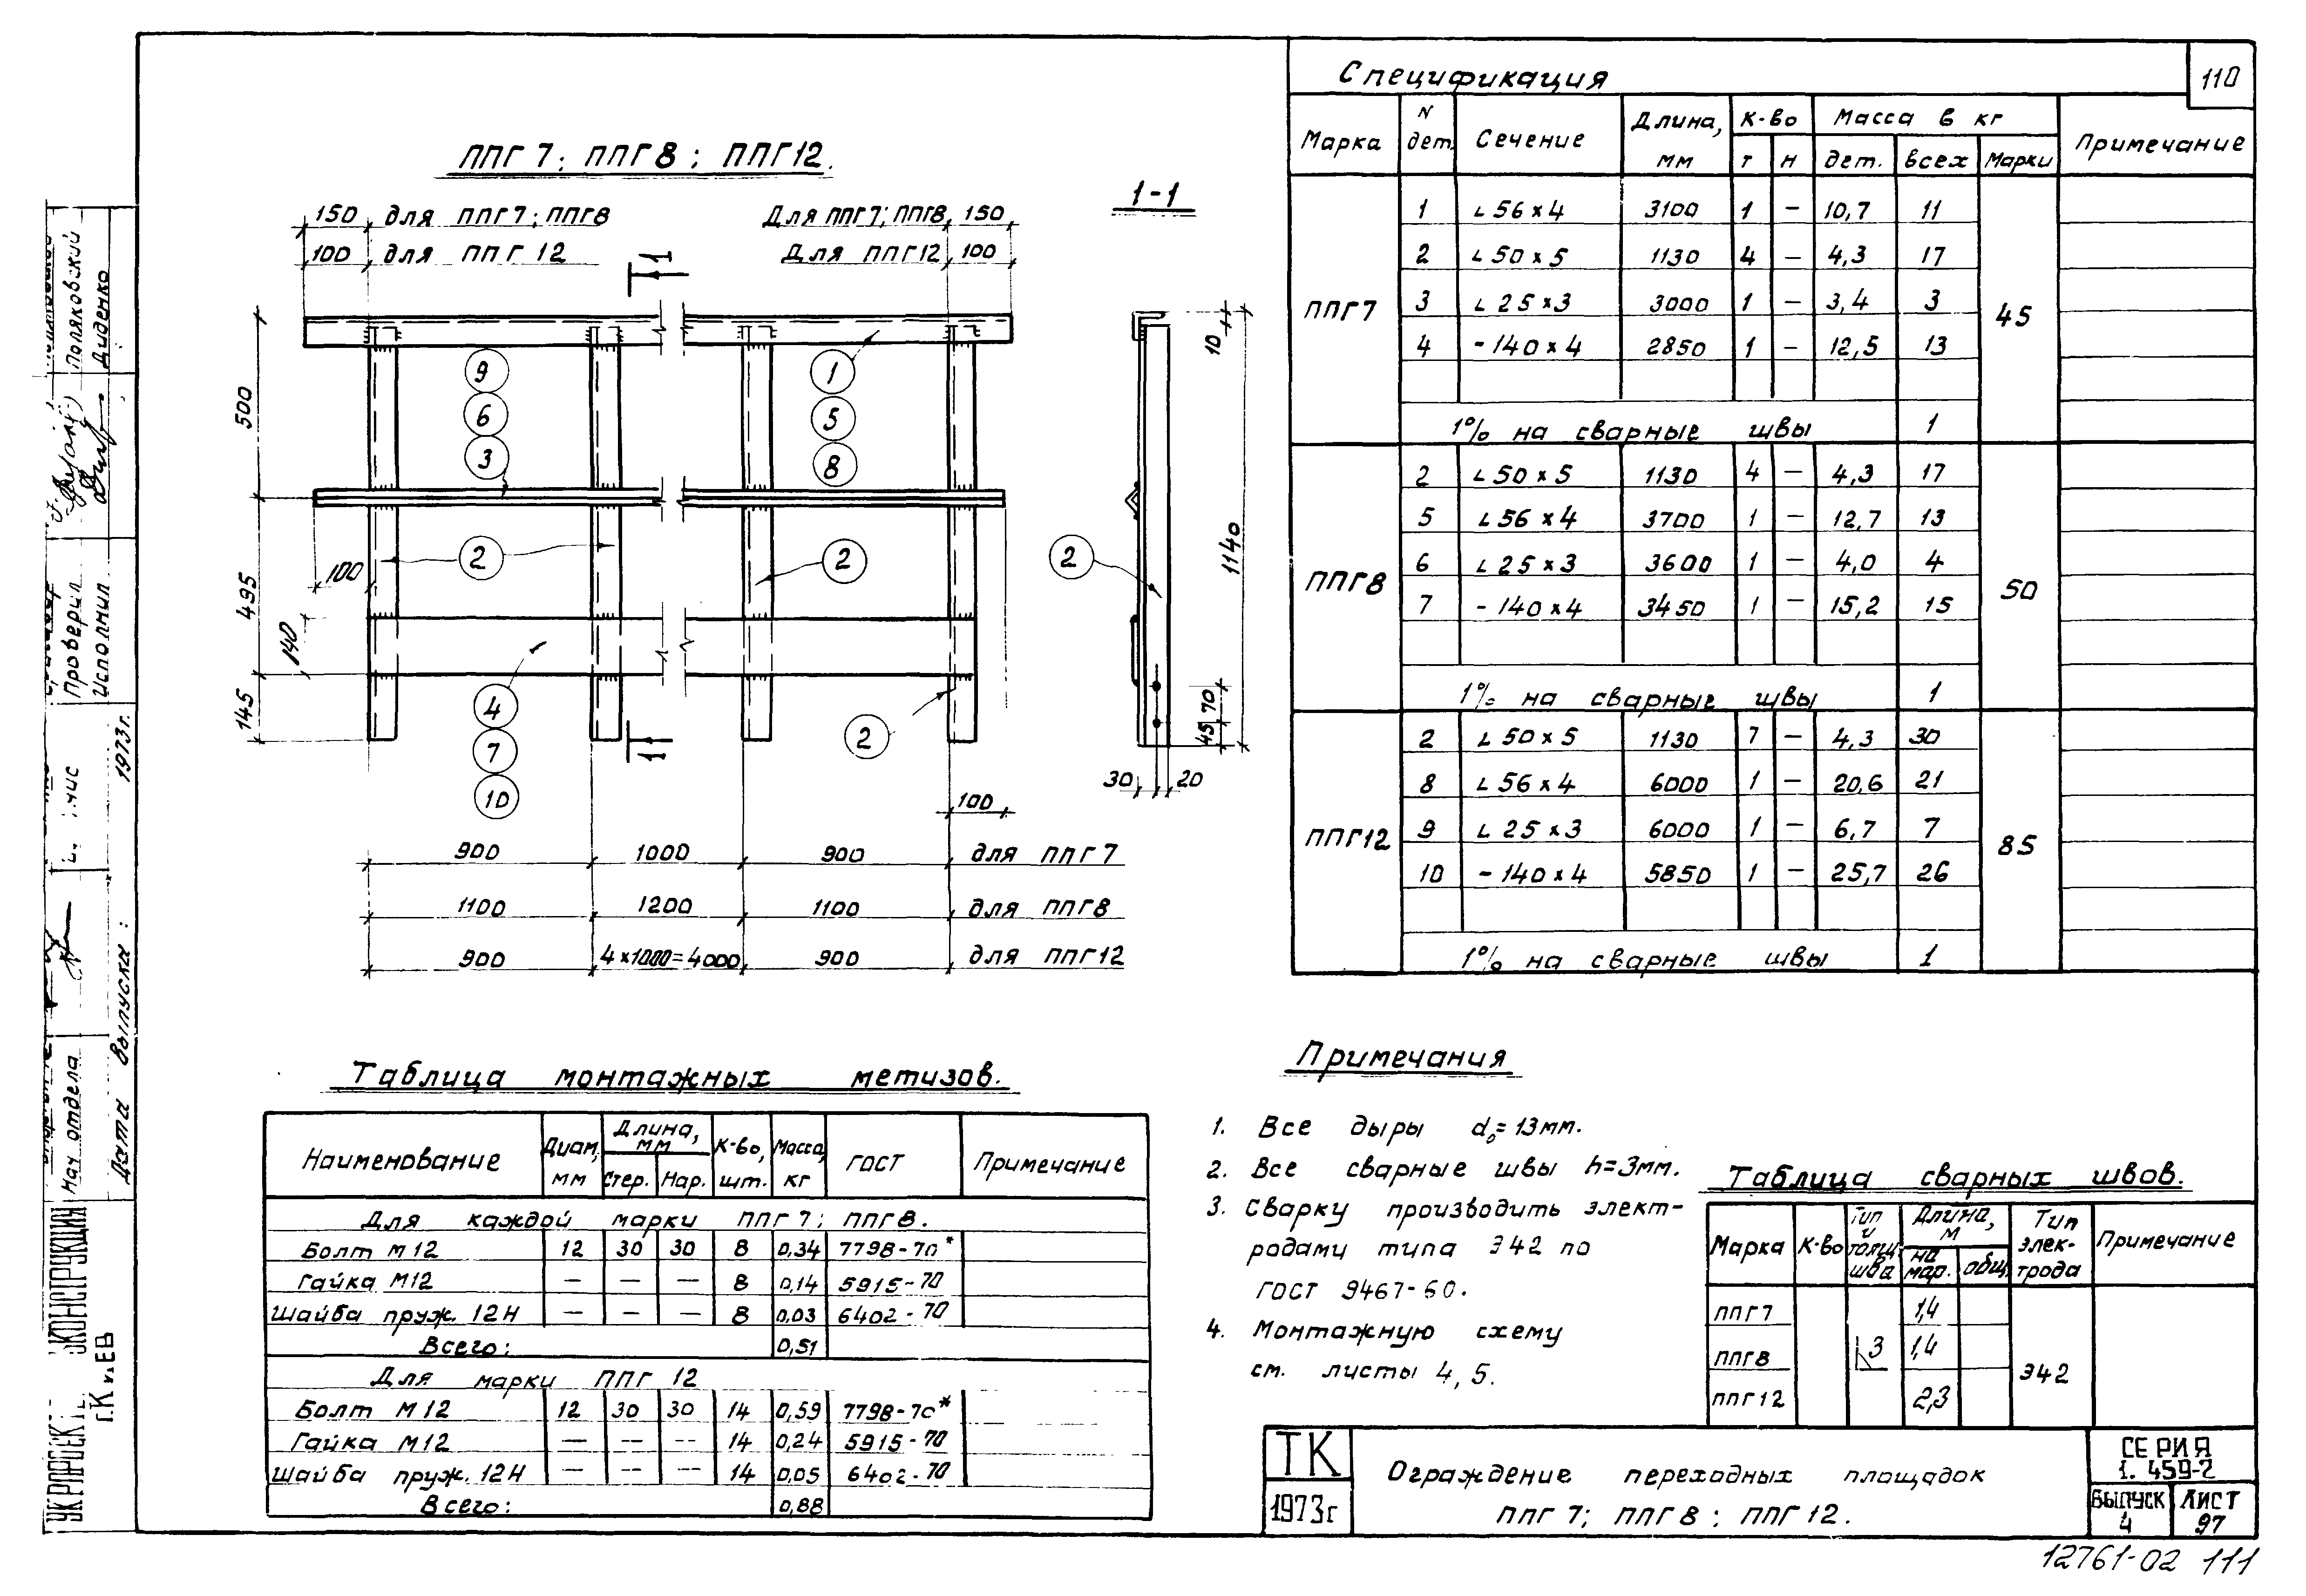 110
ППГ 7; ППГ 8; ППГ12.
1-1
150 для ППГ7; ППГ8
Для ППГ7; ППГ8, 150
100 для ППГ 12
Для ППГ12 100
1
9
6
3
1
5
8
2
2
2
2
4
7
10
1
500
495
145
140
100
100
10
1140
70
45
30
20
900 1000 900 для ППГ 7
1100 1200 1100 для ППГ8
900 4×1000=4000 900 для ППГ12
Спецификация
Марка N дет. Сечение Длина, мм К-во Масса в кг Примечание
т н дет. всех Марки
ППГ7 45
1 ∟56×4 3100 1 – 10,7 11
2 ∟50×5 1130 4 – 4,3 17
3 ∟25×3 3000 1 – 3,4 3
4 -140×4 2850 1 – 12,5 13
1% на сварные швы 1
ППГ8 50
2 ∟50×5 1130 4 – 4,3 17
5 ∟56×4 3700 1 – 12,7 13
6 ∟25×3 3600 1 – 4,0 4
7 -140×4 3450 1 – 15,2 15
1% на сварные швы 1
ППГ12 85
2 ∟50×5 1130 7 – 4,3 30
8 ∟56×4 6000 1 – 20,6 21
9 ∟25×3 6000 1 – 6,7 7
10 -140×4 5850 1 – 25,7 26
1% на сварные швы 1
Таблица монтажных метизов.
Наименование Диам, мм Длина, мм К-во, шт. Масса, кг ГОСТ Примечание
Стер. Нар.
Для каждой марки ППГ 7; ППГ8.
Болт М12 12 30 30 8 0,34 7798-70*
Гайка М12 — — — 8 0,14 5915-70
Шайба пруж. 12Н — — — 8 0,03 6402-70
Всего: 0,51
Для марки ППГ 12
Болт М12 12 30 30 14 0,59 7798-70*
Гайка М12 — — — 14 0,24 5915-70
Шайба пруж. 12Н — — — 14 0,05 6402-70
Всего: 0,88
Примечания
1. Все дыры d₀=13мм.
2. Все сварные швы h=3мм.
3. Сварку производить элект-
родами типа Э42 по
ГОСТ 9467-60.
4. Монтажную схему
см. листы 4, 5.
Таблица сварных швов.
Марка К-во Тип и толщ. шва Длина, м Тип элек-трода Примечание
на мар. общ.
ППГ7 1,4
ППГ8 3 1,4 Э42
ППГ12 2,3
ТК
1973г
Ограждение переходных площадок
ППГ 7; ППГ8; ППГ12.
СЕРИЯ
1. 459-2
Выпуск
4
Лист
97
12761-02 111
Поляковский
Диденко
Проверил
Исполнил
Нач отдела
Дата выпуска: 1973г.
г. Киев